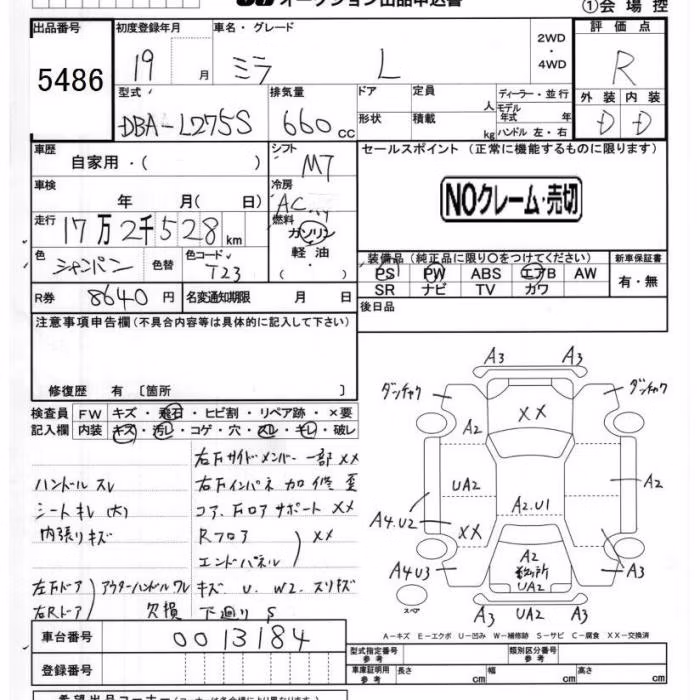 オークション出品申込書
①会場控
出品番号
5486
初度登録年月
19 月
車名・グレード
ミラ L
2WD
・
4WD
評価点
R
外装 内装
D D
型式
DBA-L275S
排気量
660 cc
ドア
形状
定員 人
積載 kg
ディーラー・並行
モデル年式 年
ハンドル 左・右
車歴
自家用・( )
シフト
M7
セールスポイント (正常に機能するものに限ります)
NOクレーム・売切
車検
年 月( 日)
冷房
AC
走行
17万2千528km
燃料
ガソリン
軽油
・( )
色
シャンパン
色替
色コード
T23
装備品 (純正品に限り○をつけてください)
PS PW ABS エアB AW
SR ナビ TV カワ
新車保証書
有・無
R券 8640円
名変通知期限 月 日
後日品
注意事項申告欄 (不具合内容等は具体的に記入して下さい)
修復歴 有 [箇所 ]
検査員記入欄
FW キズ・飛石・ヒビ割・リペア跡・×要
内装 キズ・汚レ・コゲ・穴・スレ・キレ・破レ
右Fサイドメンバー一部XX
ハンドルスレ
右Fインパネ加修歪
シートキレ(大)
コア、Fロアサポート XX
内張りキズ
Rフロア
エンドパネル
) XX
左Fドア
右Rドア
) アウターハンドルワレ
欠損
キズ U. W2. スリキズ
下廻り S
A3 A3
ダンチャク
ダンチャク
XX
A2
UA2
A2
A2.U1
A4.U2
XX
A4U3
A2
UA2
A3
スペア
A3 UA2 A3
A-キズ E-エクボ U-凹み W-補修跡 S-サビ C-腐食 XX-交換済
車台番号
0013184
登録番号
型式指定番号
参考
類別区分番号
参考
車庫証明用
参考
長さ cm
幅 cm
高さ cm
希望出品コーナー